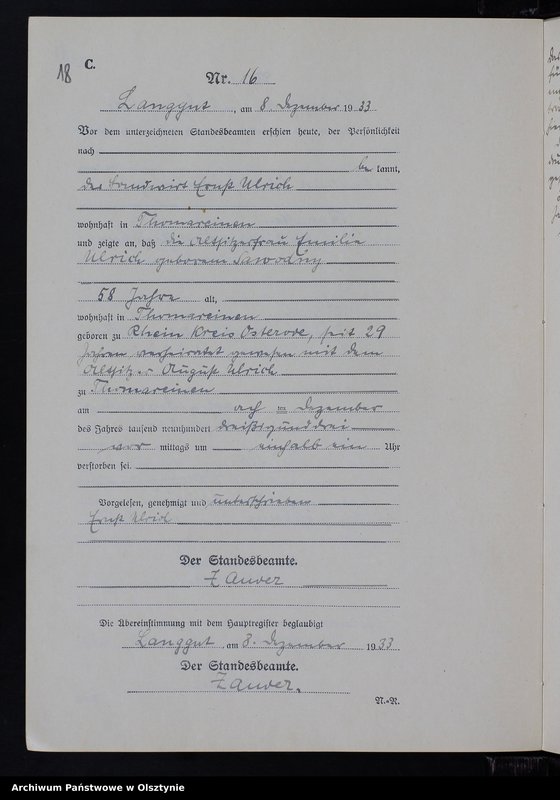 18
C.
Nr. 16
Langgut, am 8. Dezember 1933
Vor dem unterzeichneten Standesbeamten erschien heute, der Persönlichkeit
nach
be kannt,
der Landwirt Ernst Ulrich
wohnhaft in Thomareinen
und zeigte an, daß die Altsitzerfrau Emilie
Ulrich geborene Sawodny
58 Jahre alt,
wohnhaft in Thomareinen
geboren zu Rhein Kreis Osterode, seit 29
Jahren verheiratet gewesen mit dem
Altsitzer August Ulrich
zu Thomareinen
am acht im Dezember
des Jahres tausend neunhundert dreißigunddrei
vor mittags um einhalb ein Uhr
verstorben sei.
Vorgelesen, genehmigt und unterschrieben
Ernst Ulrich
Der Standesbeamte.
Die Übereinstimmung mit dem Hauptregister beglaubigt
Langgut, am 8. Dezember 1933
Der Standesbeamte.
N.-R.
Archiwum Państwowe w Olsztynie